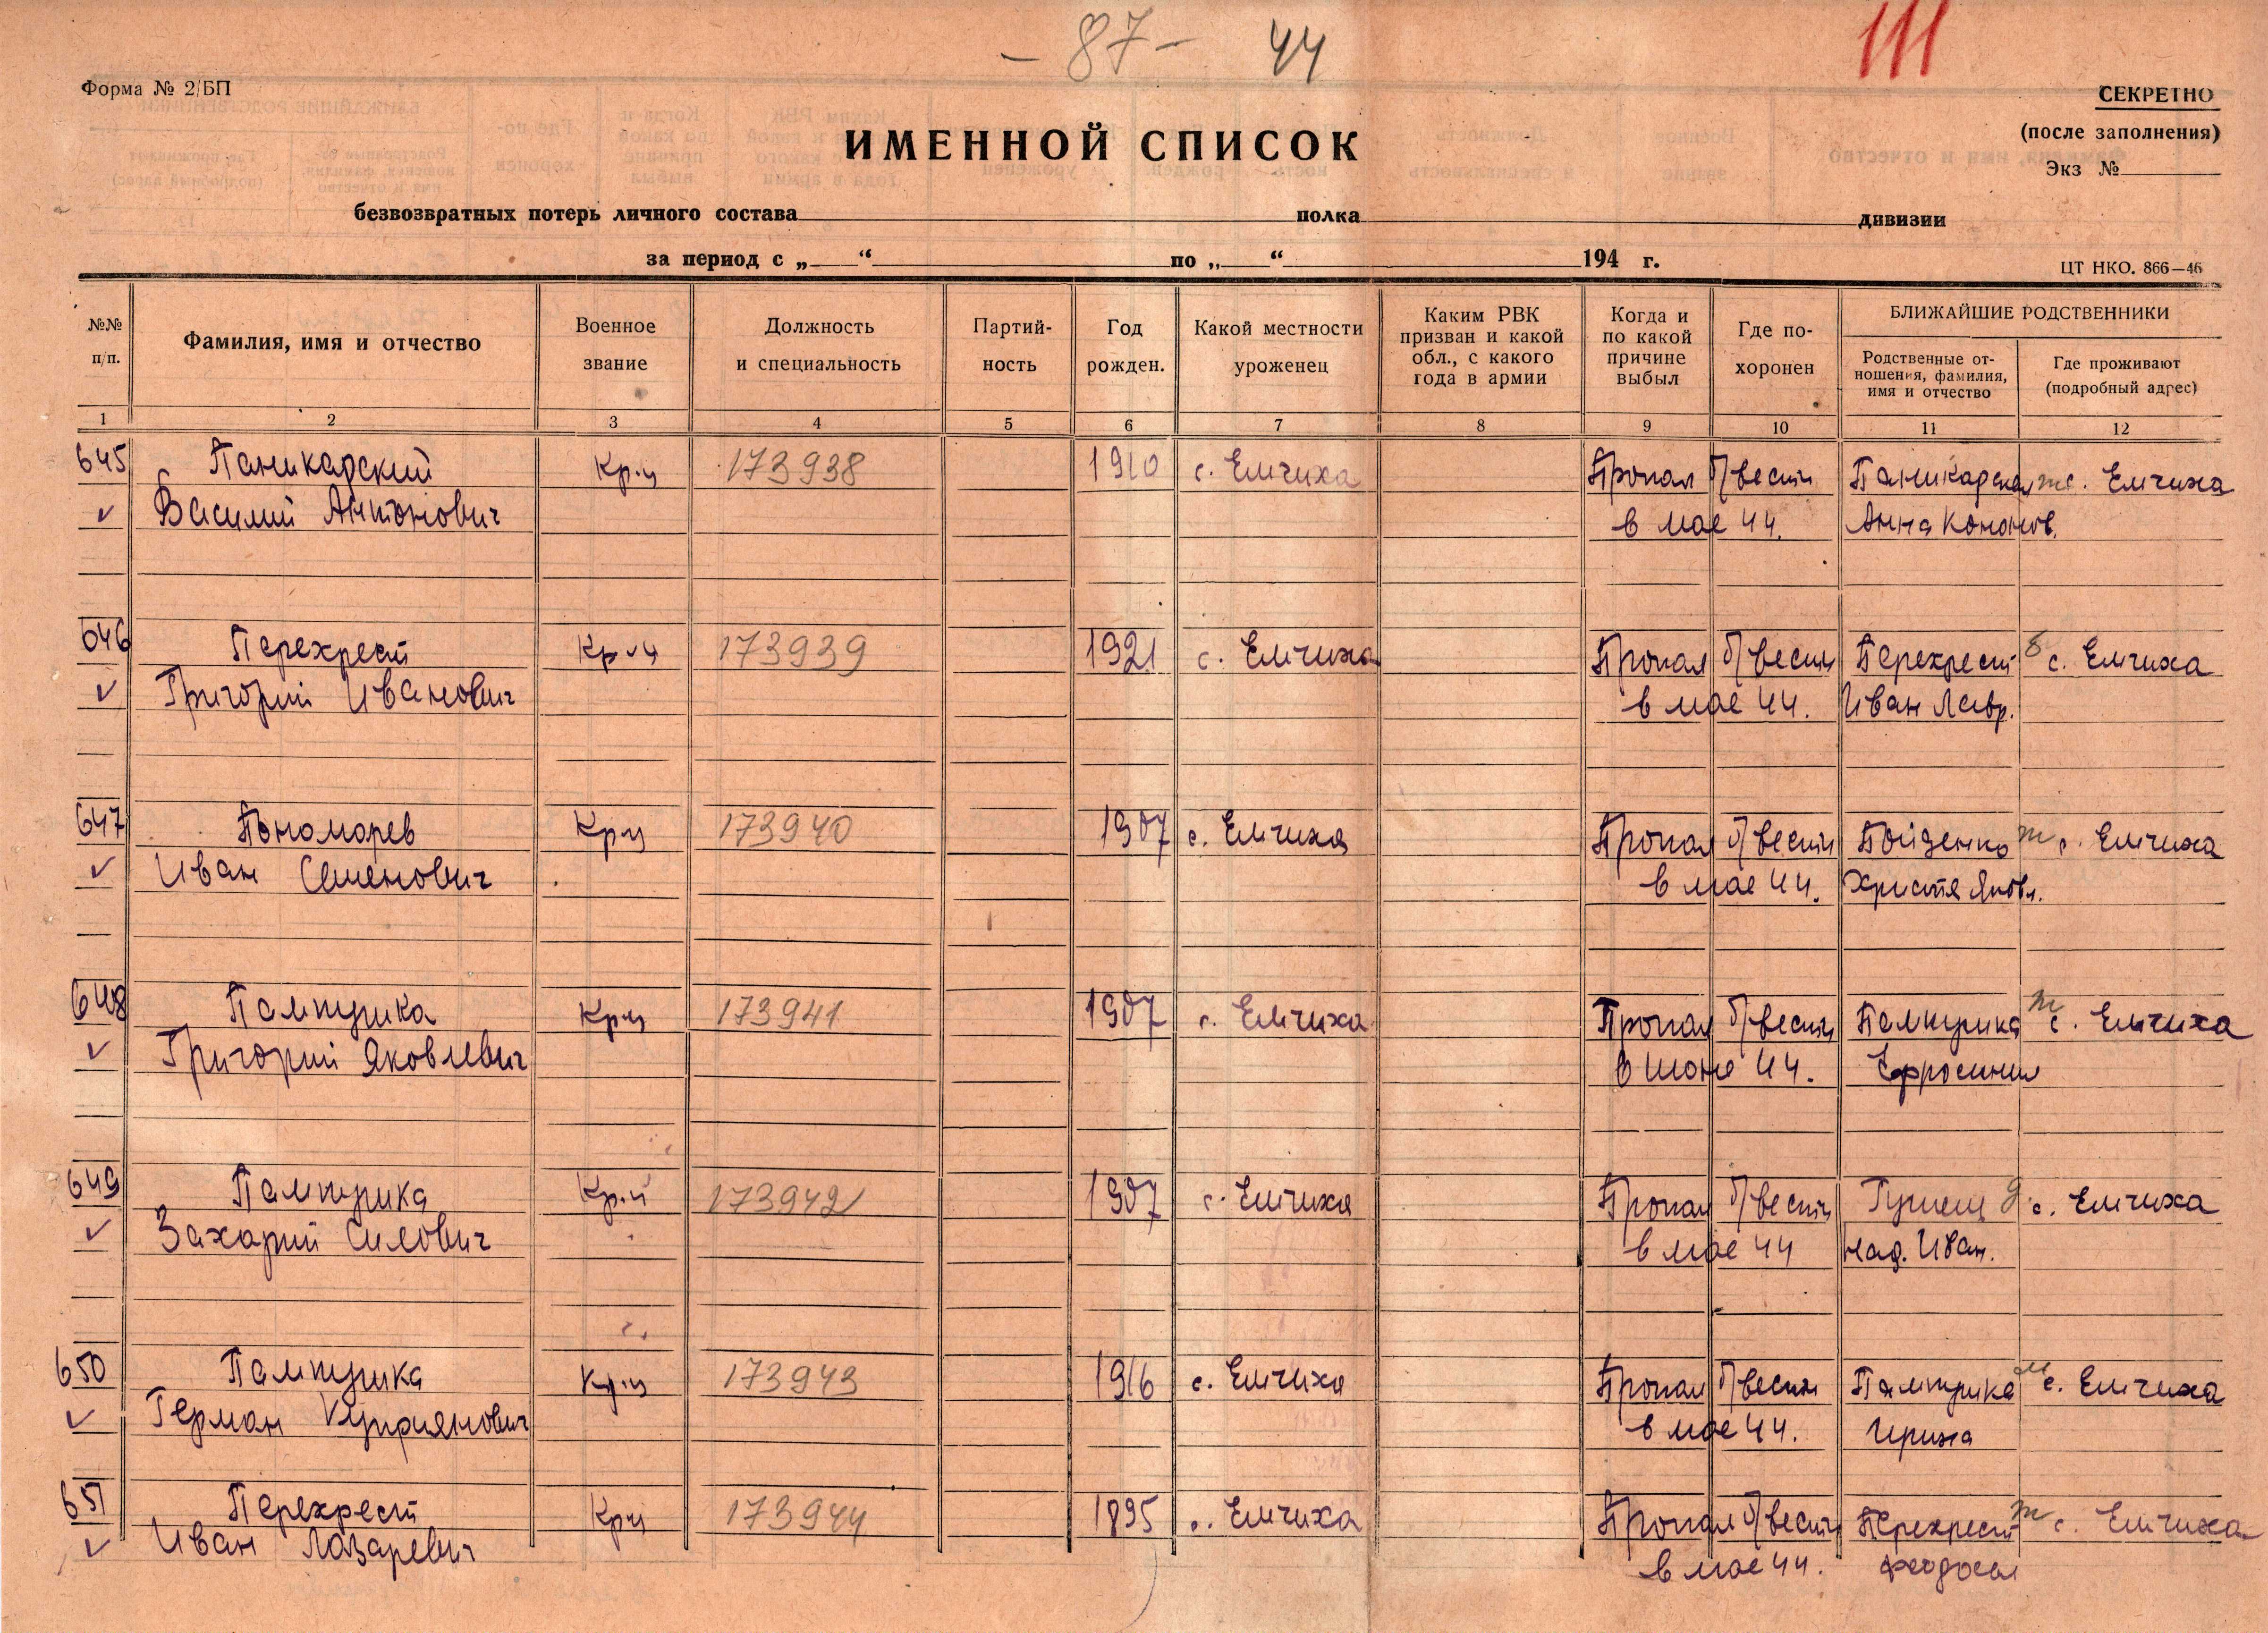 - 87 - 44
111
Форма № 2/БП
СЕКРЕТНО
(после заполнения)
Экз №
ИМЕННОЙ СПИСОК
безвозвратных потерь личного состава полка дивизии
за период с „ “ по „ “ 194 г.
ЦТ НКО. 866—46
№№ п/п.
Фамилия, имя и отчество
Военное звание
Должность и специальность
Партий-
ность
Год рожден.
Какой местности уроженец
Каким РВК
призван и какой
обл., с какого
года в армии
Когда и
по какой
причине
выбыл
Где по-
хоронен
БЛИЖАЙШИЕ РОДСТВЕННИКИ
Родственные от-
ношения, фамилия,
имя и отчество
Где проживают
(подробный адрес)
1 2 3 4 5 6 7 8 9 10 11 12
645 Паникарский Кр-ц 173938 1910 с. Емчиха Пропал б/вести Паникарская ж с. Емчиха
Василий Антонович в мае 44. Анна Кононов.
646 Перехрест Кр-ц 173939 1921 с. Емчиха Пропал б/вести Перехрест с. Емчиха
Григорий Иванович в мае 44. Иван Лавр.
647 Пономарев Кр-ц 173940 1907 с. Емчиха Пропал б/вести Бойденко ж с. Емчиха
Иван Семенович в мае 44. Христя Яковл.
648 Пампушка Кр-ц 173941 1907 с. Емчиха Пропал б/вести Пампушка ж с. Емчиха
Григорий Яковлевич в июне 44. Ефросиния
649 Пампушка Кр-ц 173942 1907 с. Емчиха Пропал б/вести с. Емчиха
Захарий Силович в мае 44 Над. Иван.
650 Пампушка Кр-ц 173943 1916 с. Емчиха Пропал б/вести Пампушка м с. Емчиха
Герман Куприянович в мае 44. Ирина
651 Перехрест Кр-ц 173944 1895 с. Емчиха Пропал б/вести Перехрест ж с. Емчиха
Иван Лазаревич в мае 44. Феодосия